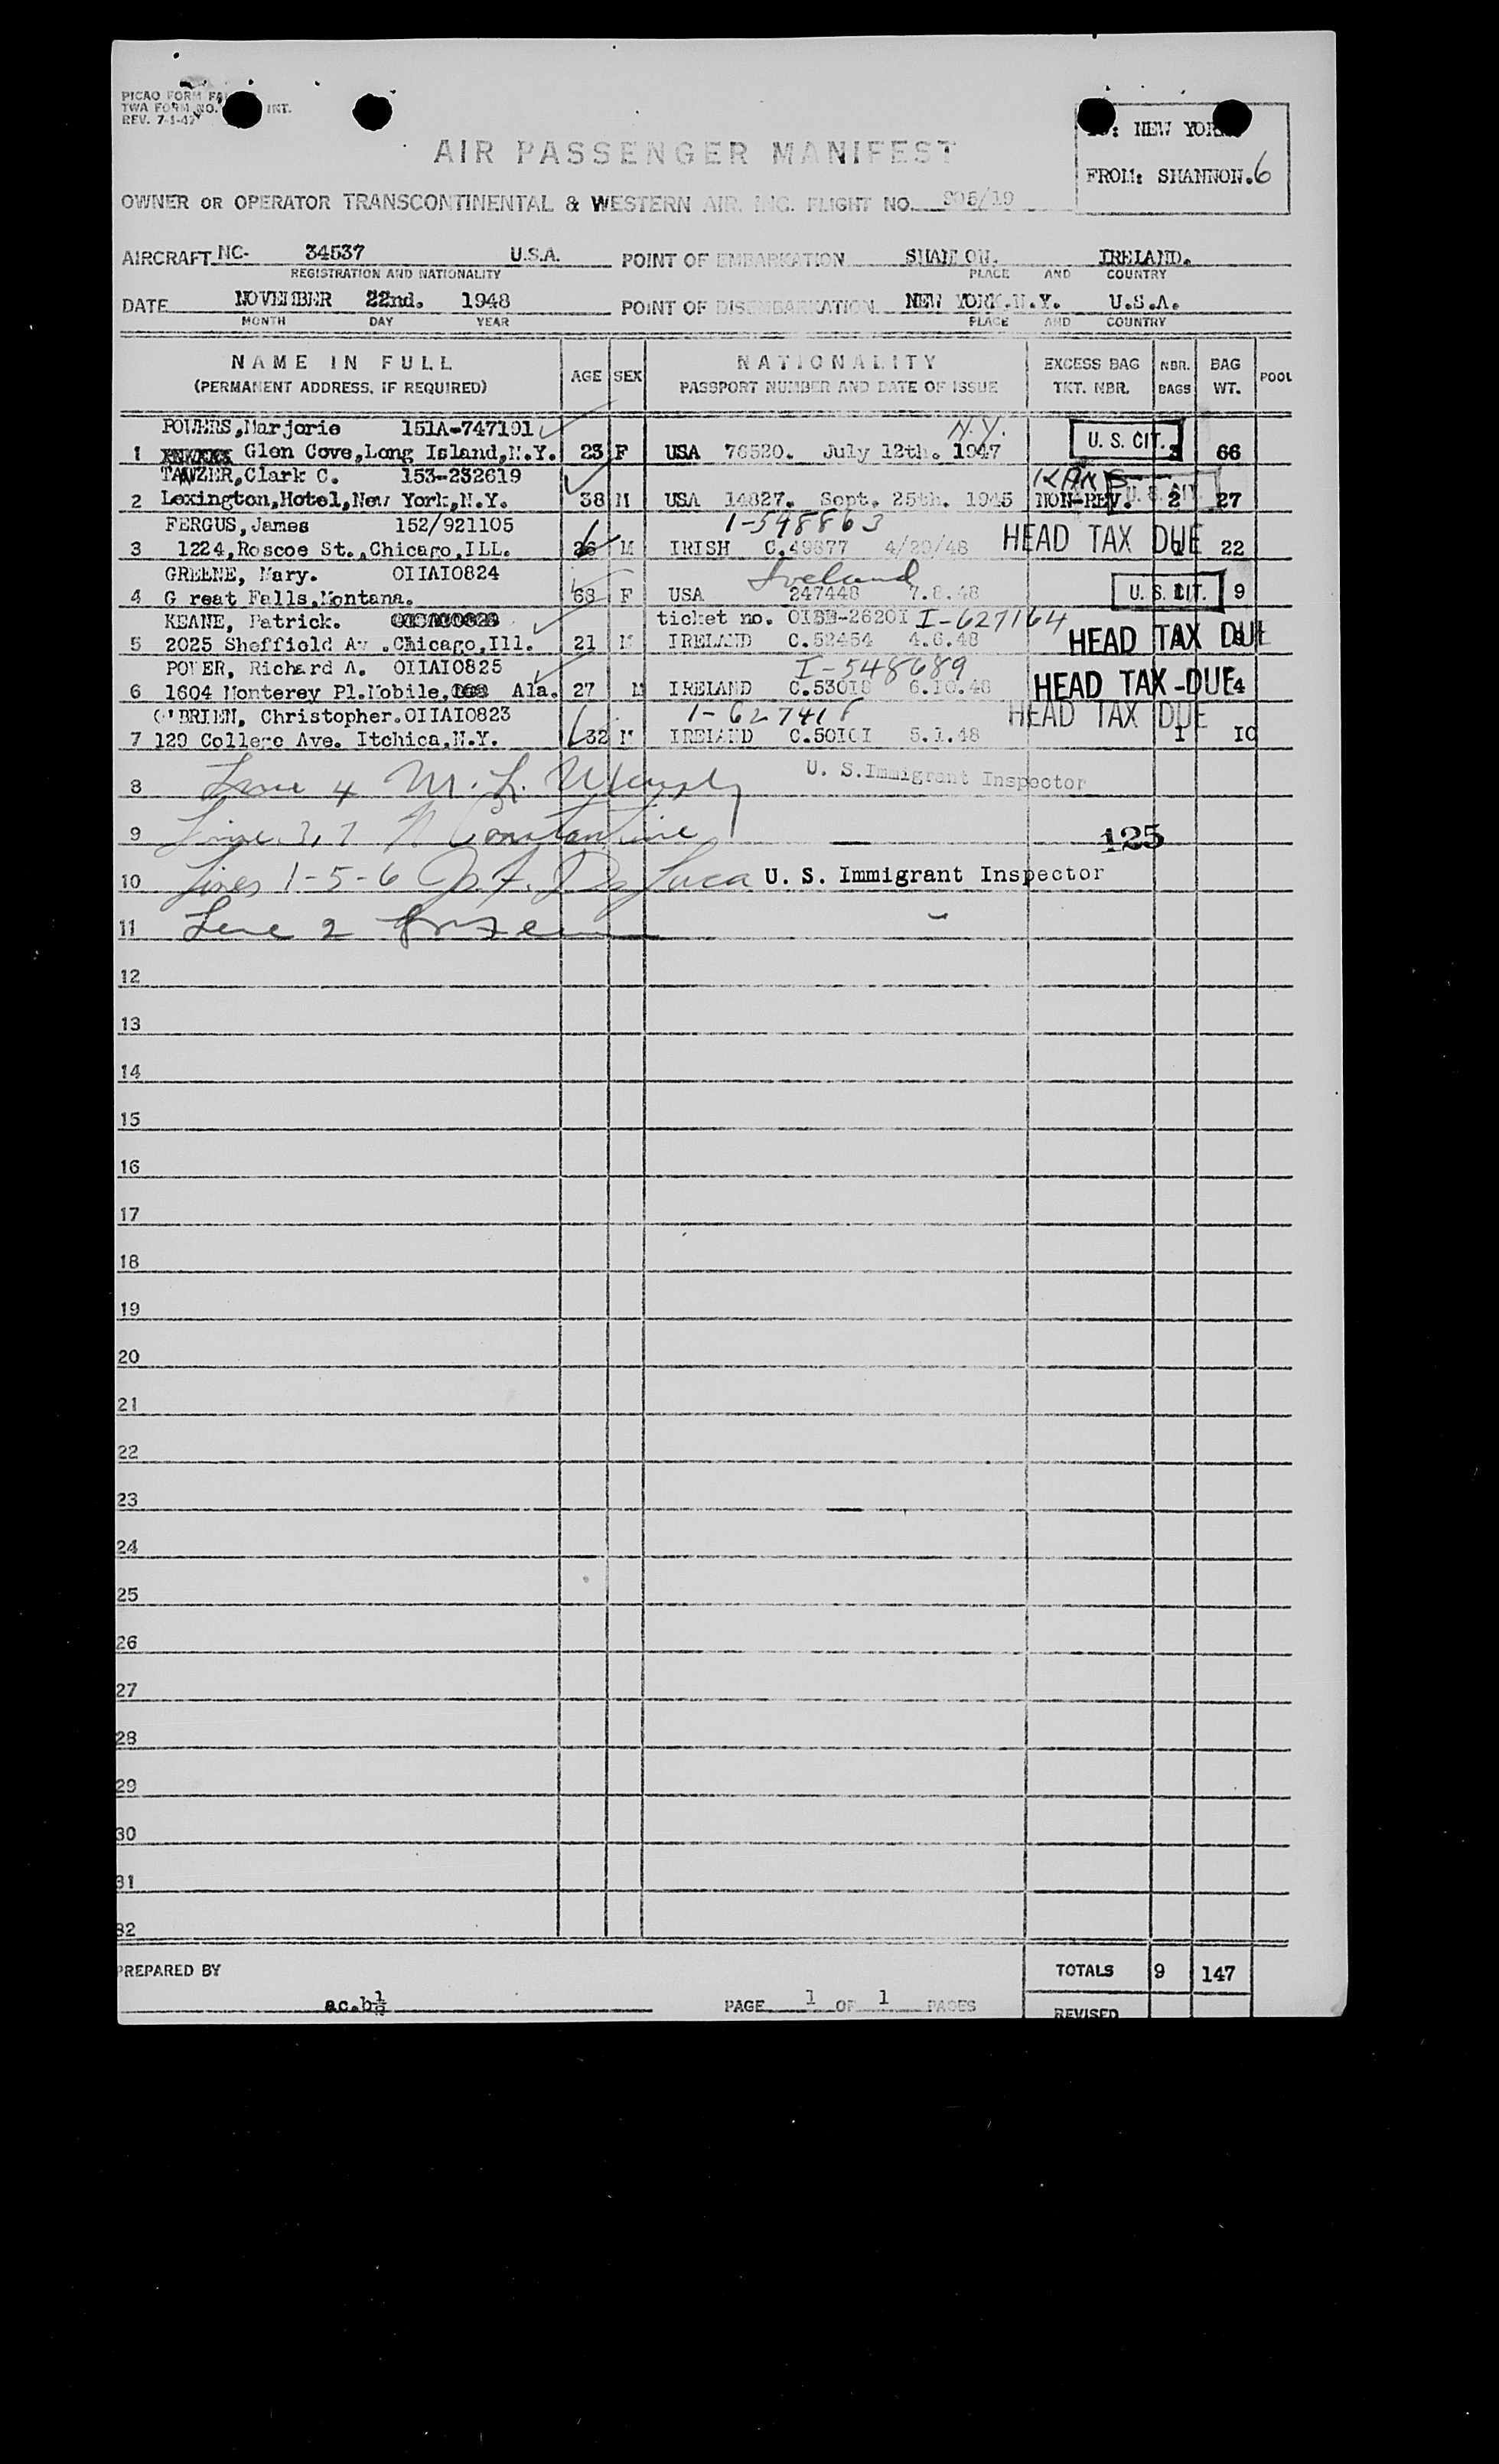 PICAO FORM
TWA FORM NO. INT.
REV. 7-1-47
: NEW YORK
FROM: SHANNON. 6
AIR PASSENGER MANIFEST
OWNER OR OPERATOR TRANSCONTINENTAL & WESTERN AIR, INC. FLIGHT NO. 906/19
AIRCRAFT NC- 34537 U.S.A. POINT OF EMBARKATION SHANNON. IRELAND.
REGISTRATION AND NATIONALITY PLACE AND COUNTRY
DATE NOVEMBER 22nd. 1948 POINT OF DISEMBARKATION NEW YORK.N.Y. U.S.A.
MONTH DAY YEAR PLACE AND COUNTRY
NAME IN FULL AGE SEX NATIONALITY EXCESS BAG NBR. BAG POOL
(PERMANENT ADDRESS, IF REQUIRED) PASSPORT NUMBER AND DATE OF ISSUE TKT. NBR. BAGS WT.
POWERS,Marjorie 151A-747191 N.Y.
1 Glen Cove,Long Island,N.Y. 23 F USA 76520. July 12th. 1947 U. S. CIT. 66
TANZER,Clark C. 153-232619 KANS
2 Lexington,Hotel,New York,N.Y. 38 M USA 14827. Sept. 25th. 1945 NON-REV. U. S. CIT 2 27
FERGUS,James 152/921105 1-548863
3 1224,Roscoe St.,Chicago,ILL. 26 M IRISH C.49877 4/20/48 HEAD TAX DUE 22
GREENE, Mary. OIIAIO824 Ireland
4 G reat Falls.Montana. 68 F USA 247448 7.8.48 U. S. CIT. 9
KEANE, Patrick. ticket no. OISB-2620I I-627164
5 2025 Sheffield Av .Chicago,Ill. 21 M IRELAND C.52454 4.6.48 HEAD TAX DUE
POWER, Richard A. OIIAIO825 I-548689
6 1604 Monterey Pl.Mobile, Ala. 27 M IRELAND C.530I8 6.10.48 HEAD TAX DUE 4
O'BRIEN, Christopher.OIIAIO823 1-627418 HEAD TAX DUE
7 129 College Ave. Itchica,N.Y. 32 M IRELAND C.50I0I 5.1.48 I IO
8 Line 4 M. L. Murphy U. S.Immigrant Inspector
9 Line 3, 7 N Constantine 125
10 Lines 1-5-6 J. F. De Luca U. S. Immigrant Inspector
11 Line 2
12
13
14
15
16
17
18
19
20
21
22
23
24
25
26
27
28
29
30
31
32
PREPARED BY TOTALS 9 147
ac.b½ PAGE 1 OF 1 PAGES
REVISED